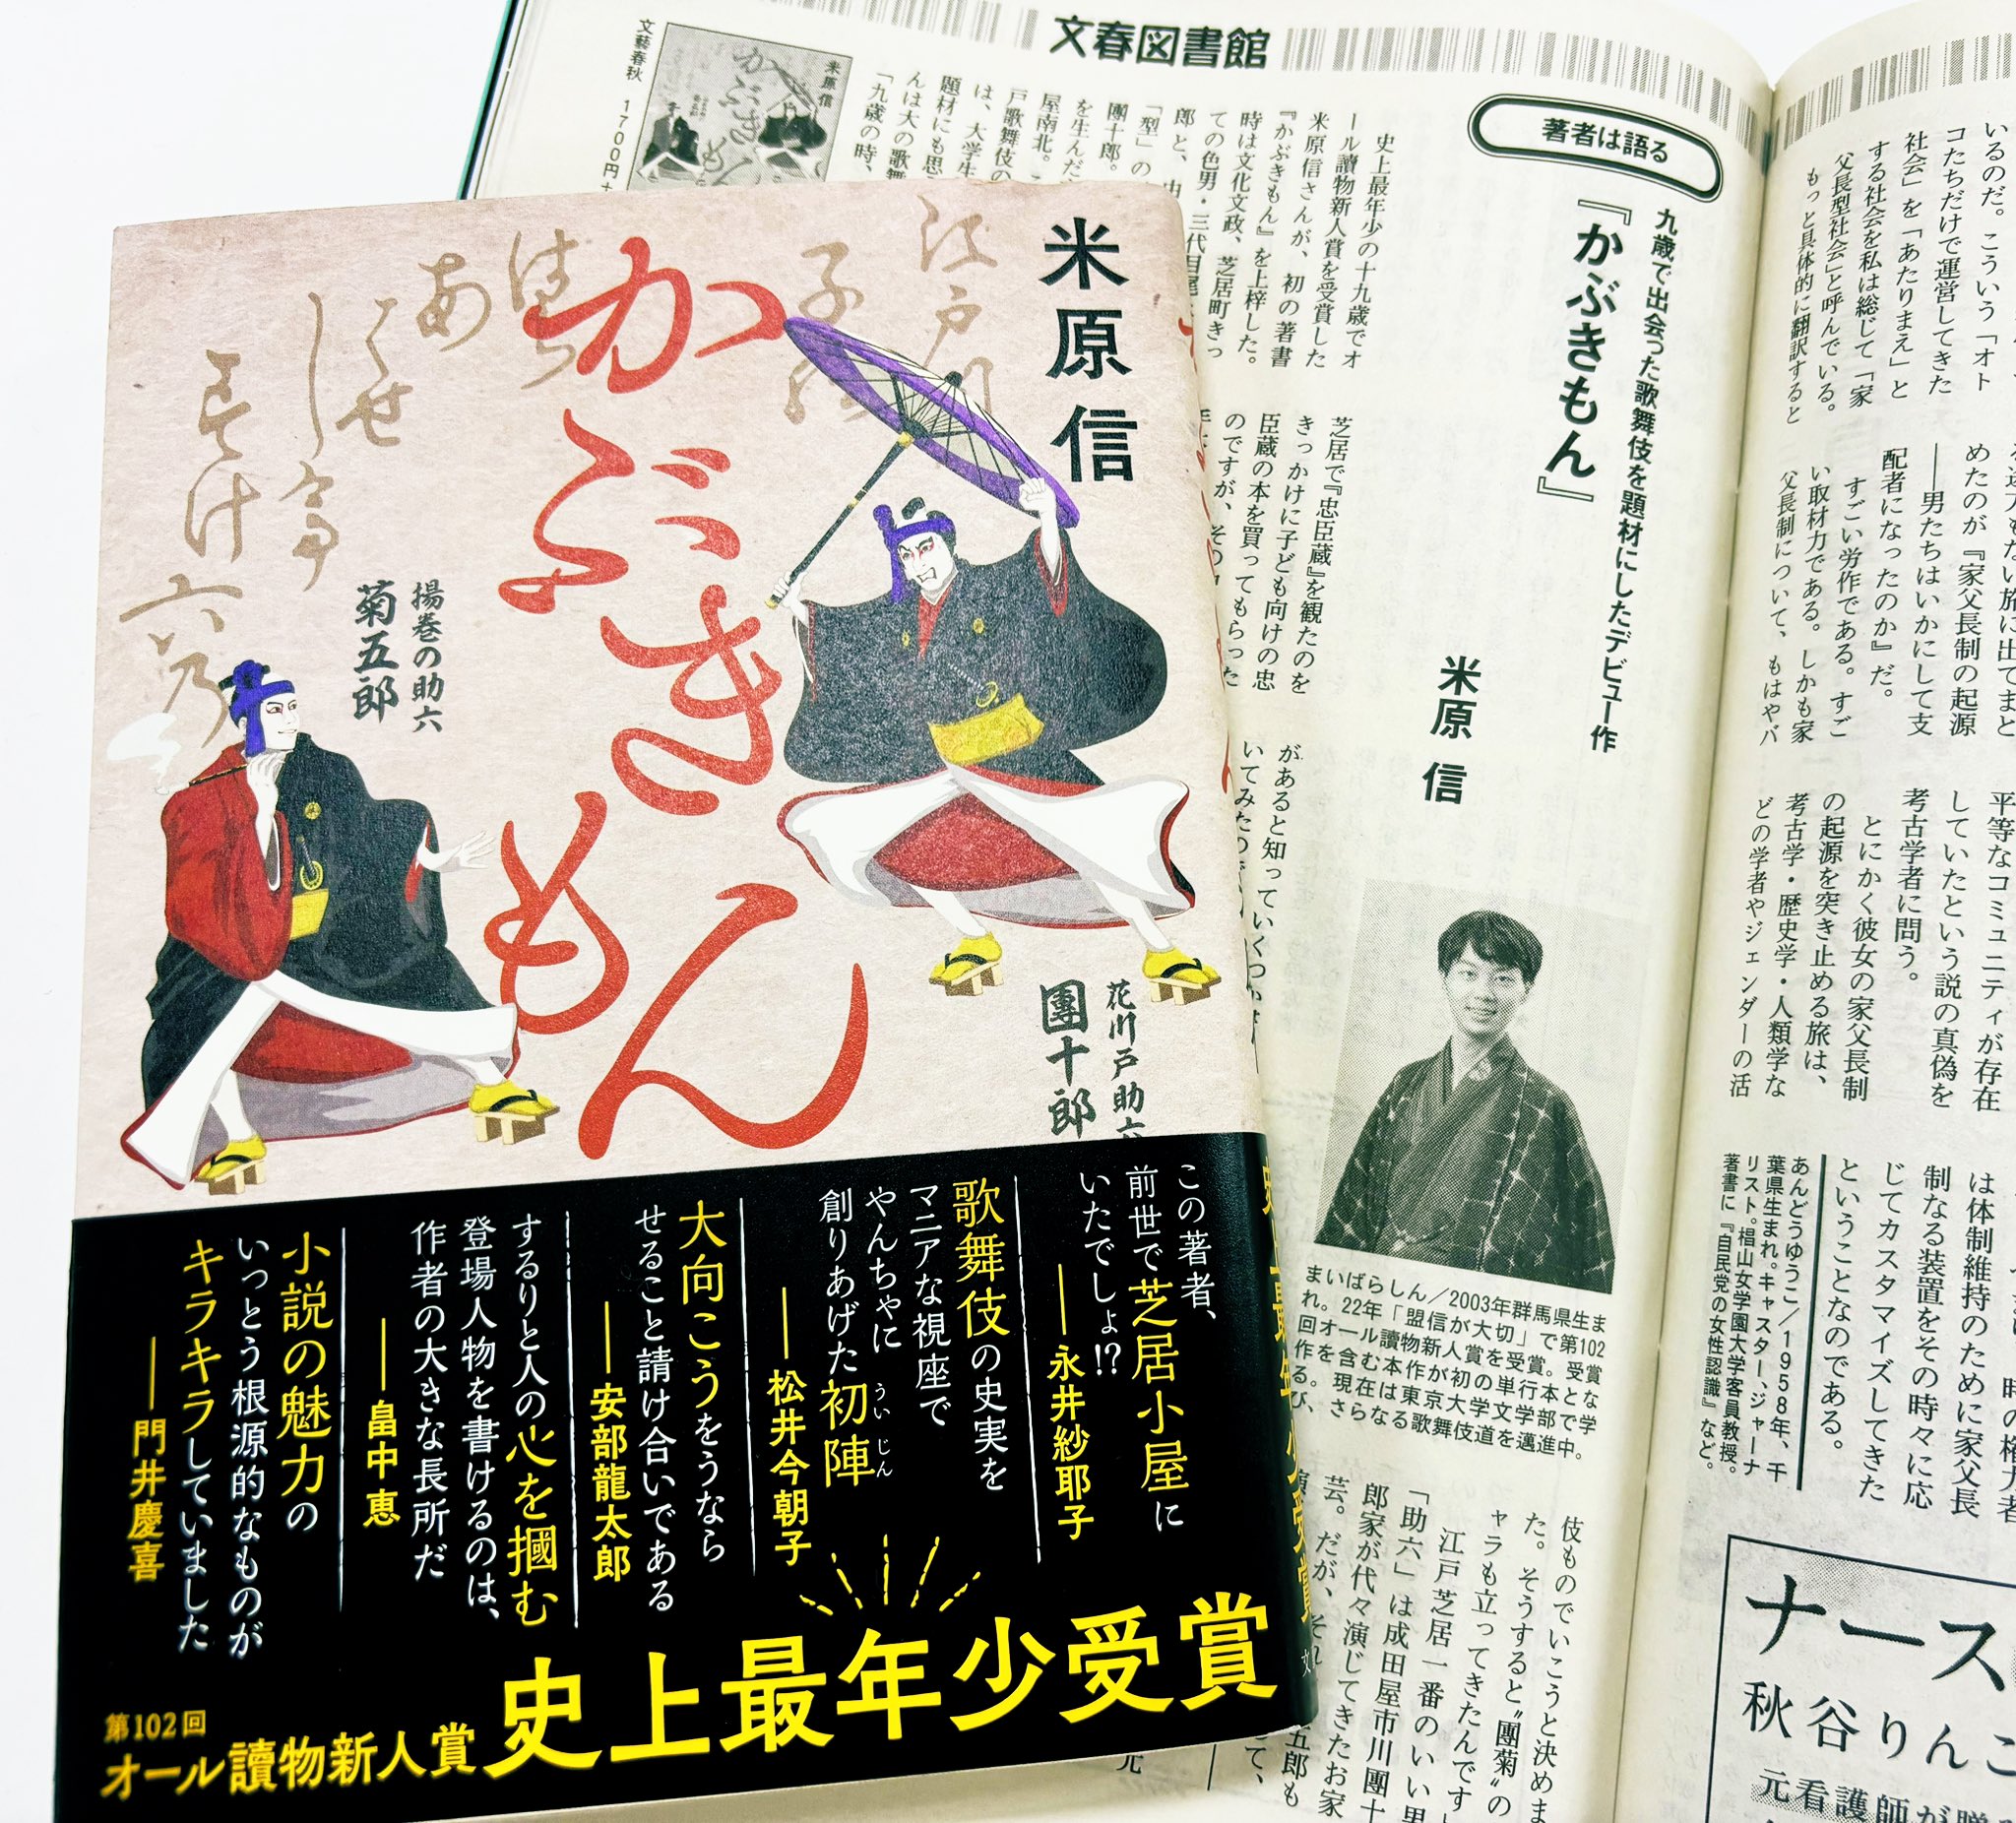 米原信
かぶきもん
花川戸助六
團十郎
揚巻の助六
菊五郎
この著者、
前世で芝居小屋に
いたでしょ!?
――永井紗耶子
歌舞伎の史実を
マニアな視座で
やんちゃに
創りあげた初陣
ういじん
――松井今朝子
大向こうをうなら
せること請け合いである
――安部龍太郎
するりと人の心を摑む
登場人物を書けるのは、
作者の大きな長所だ
――畠中恵
小説の魅力の
いっとう根源的なものが
キラキラしていました
――門井慶喜
第102回
オール讀物新人賞 史上最年少受賞
文春図書館
著者は語る
九歳で出会った歌舞伎を題材にしたデビュー作
『かぶきもん』
米原 信
史上最年少の十九歳でオ
ール讀物新人賞を受賞した
米原信さんが、初の著書
『かぶきもん』を上梓した。
時は文化文政、芝居町きっ
ての色男・三代目尾
郎と、
「型」の
團十郎。
を生んだ
屋南北。
戸歌舞伎の
は、大学生
題材にも思
んは大の歌舞
「九歳の時、
米原信
かぶきもん
文藝春秋 1700円
芝居で『忠臣蔵』を観たのを
きっかけに子ども向けの忠
臣蔵の本を買ってもらった
のですが、その
があると知っていくつか
いてみたので
まいばらしん/2003年群馬県生ま
れ。22年「盟信が大切」で第102
回オール讀物新人賞を受賞。受賞
作を含む本作が初の単行本とな
る。現在は東京大学文学部で学
び、さらなる歌舞伎道を邁進中。
伎ものでいこうと決めま
た。そうすると〝團菊〟の
ャラも立ってきたんです」
江戸芝居一番のいい男
「助六」は成田屋市川團十
郎家が代々演じてきたお家
芸。だが、それ
五郎も
いるのだ。こういう「オト
コたちだけで運営してきた
社会」を「あたりまえ」と
する社会を私は総じて「家
父長型社会」と呼んでいる。
もっと具体的に翻訳すると
めたのが『家父長制の起源
――男たちはいかにして支
配者になったのか』だ。
すごい労作である。すご
い取材力である。しかも家
父長制について、もはやバ
平等なコミュニティが存在
していたという説の真偽を
考古学者に問う。
とにかく彼女の家父長制
の起源を突き止める旅は、
考古学・歴史学・人類学な
どの学者やジェンダーの活
は体制維持のために家父長
制なる装置をその時々に応
じてカスタマイズしてきた
ということなのである。
あんどうゆうこ/1958年、千
葉県生まれ。キャスター、ジャーナ
リスト。椙山女学園大学客員教授。
著書に『自民党の女性認識』など。
ナース
秋谷りんこ
元看護師が贈